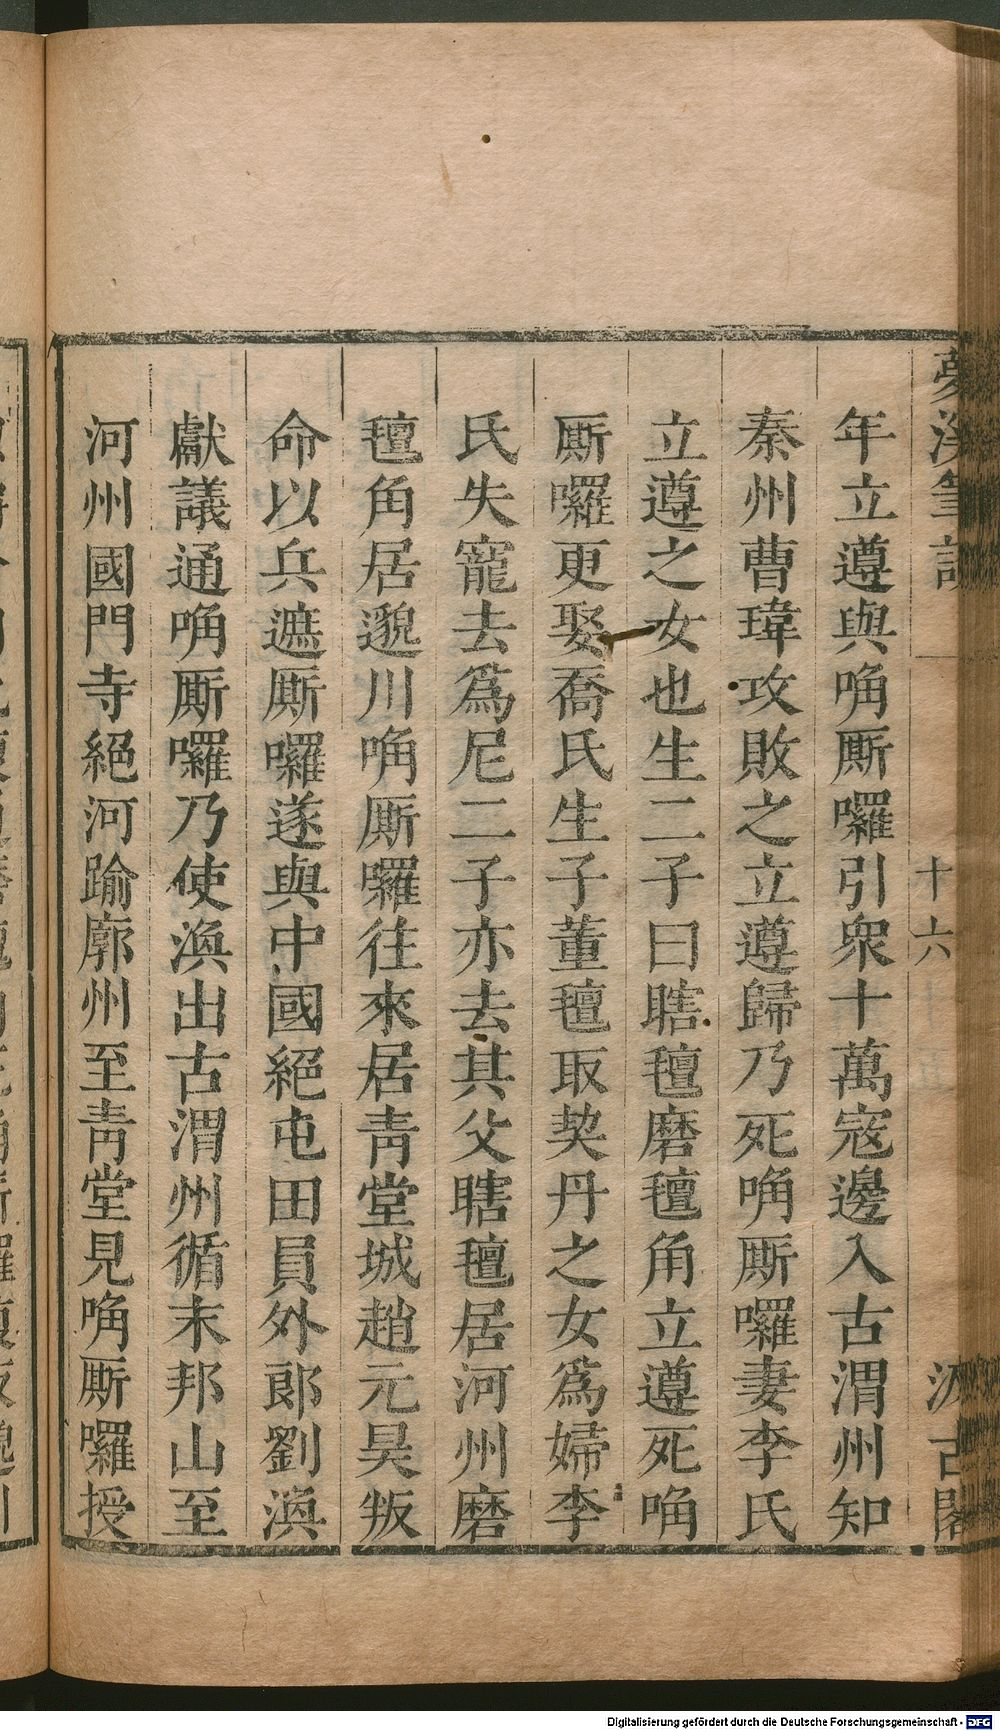 夢溪筆談
十六
汲古閣
年立遵與唃厮囉引衆十萬寇邊入古渭州知
秦州曹瑋攻敗之立遵歸乃死唃厮囉妻李氏
立遵之女也生二子曰瞎氊磨氊角立遵死唃
厮囉更娶喬氏生子董氊取契丹之女爲婦李
氏失寵去爲尼二子亦去其父瞎氊居河州磨
氊角居邈川唃厮囉往來居青堂城趙元昊叛
命以兵遮厮囉遂與中國絕屯田員外郎劉渙
獻議通唃厮囉乃使渙出古渭州循末邦山至
河州國門寺絕河踰廓州至青堂見唃厮囉授
Digitalisierung gefördert durch die Deutsche Forschungsgemeinschaft - DFG